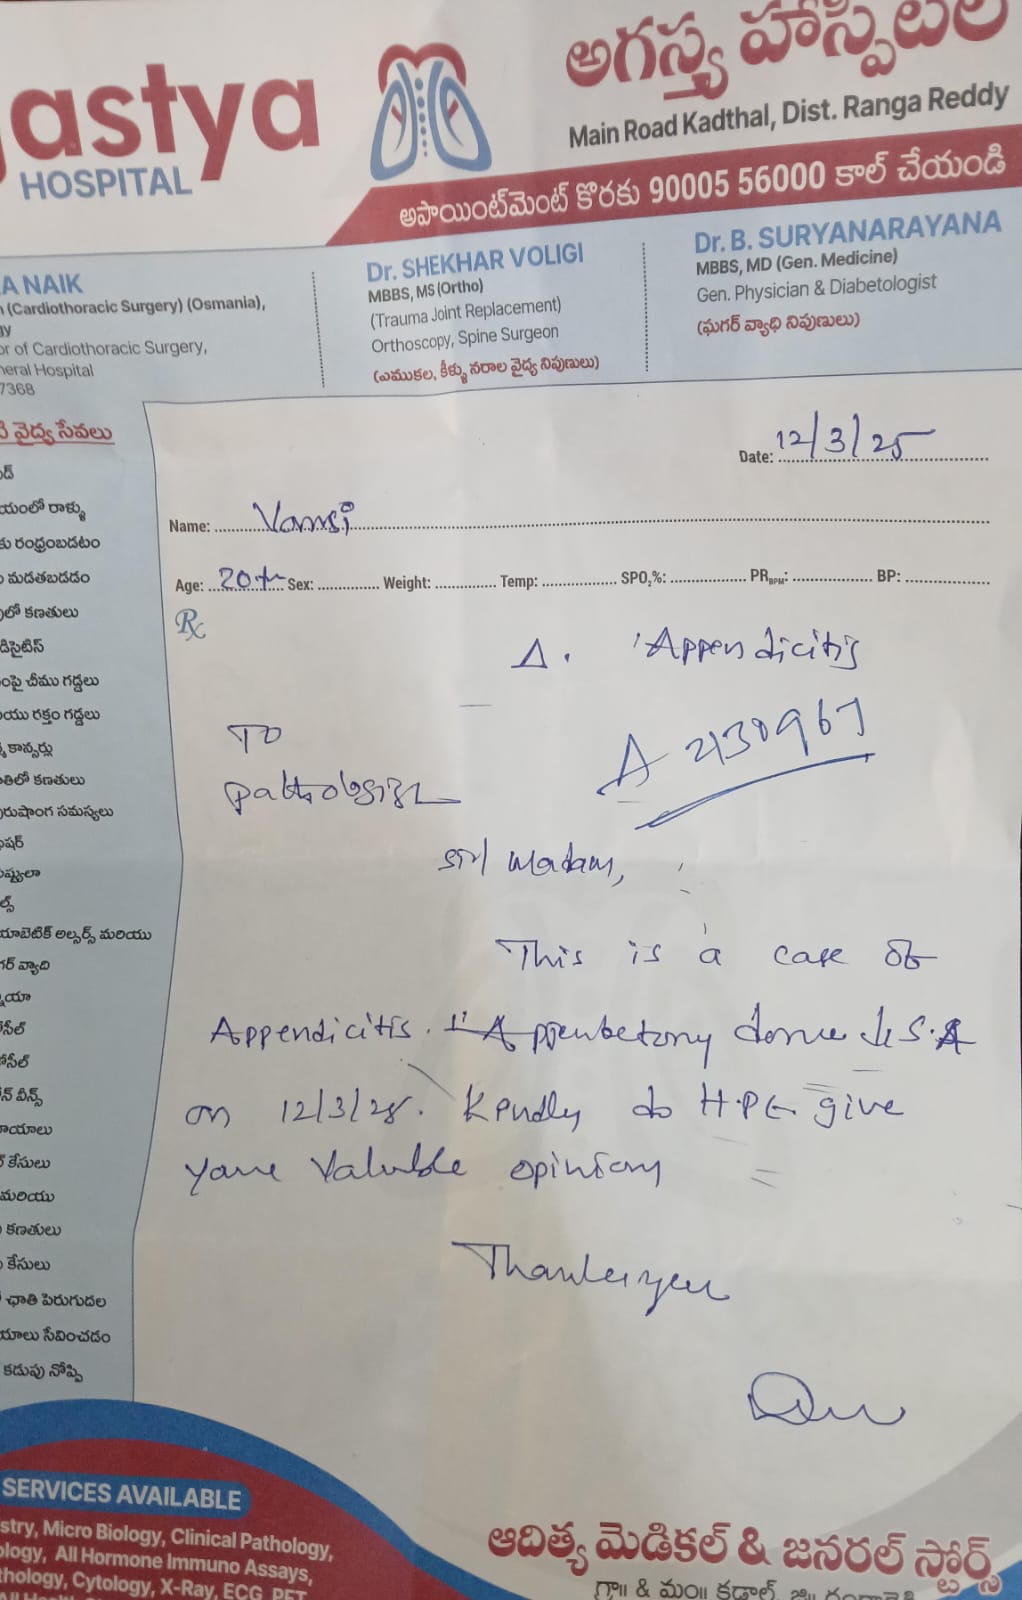 astya
HOSPITAL
అగస్త్య హాస్పిటల్
Main Road Kadthal, Dist. Ranga Reddy
అపాయింట్‌మెంట్ కొరకు 90005 56000 కాల్ చేయండి
A NAIK
(Cardiothoracic Surgery) (Osmania),
or of Cardiothoracic Surgery,
neral Hospital
7368
Dr. SHEKHAR VOLIGI
MBBS, MS (Ortho)
(Trauma Joint Replacement)
Orthoscopy, Spine Surgeon
(ఎముకల, కీళ్ళు నరాల వైద్య నిపుణులు)
Dr. B. SURYANARAYANA
MBBS, MD (Gen. Medicine)
Gen. Physician & Diabetologist
(షుగర్ వ్యాధి నిపుణులు)
వైద్య సేవలు
యంలో రాళ్ళు
కు రంధ్రంబడటం
మడతబడడం
లో కణతులు
డిసైటిస్
పై చీము గడ్డలు
యు రక్తం గడ్డలు
కాన్సర్లు
తిలో కణతులు
రుషాంగ సమస్యలు
యాబెటిక్ అల్సర్స్ మరియు
గర్ వ్యాధి
కేసులు
మరియు
కణతులు
కేసులు
ఛాతి పెరుగుదల
యాలు సేవించడం
కడుపు నొప్పి
Date: 12/3/25
Name: Vamsi
Age: 20 Sex: Weight: Temp: SPO2%: PR BPM: BP:
Rx
Δ. Appendicitis
To
pathologist
Sir/ Madam,
This is a case of
Appendicitis. done
on 12/3/25. Kindly do H.P.E. give
your valuble opinion
Thank you
SERVICES AVAILABLE
stry, Micro Biology, Clinical Pathology,
ology, All Hormone Immuno Assays,
thology, Cytology, X-Ray, ECG, PFT
ఆదిత్య మెడికల్ & జనరల్ స్టోర్స్